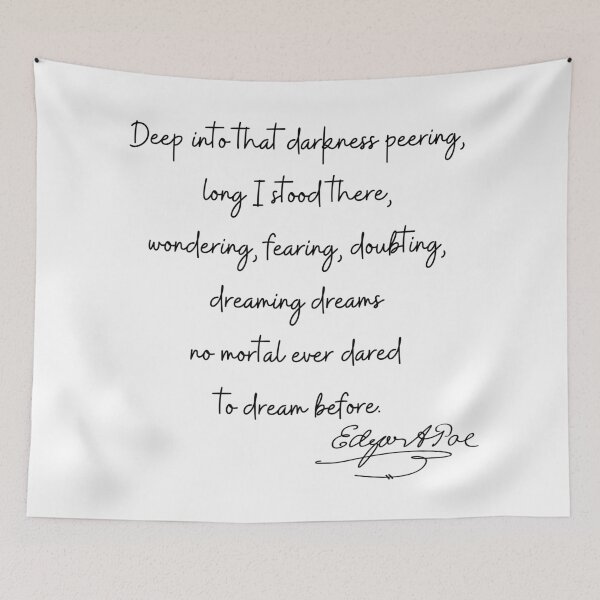 Deep into that darkness peering,
long I stood there,
wondering, fearing, doubting,
dreaming dreams
no mortal ever dared
to dream before.
Edgar A Poe